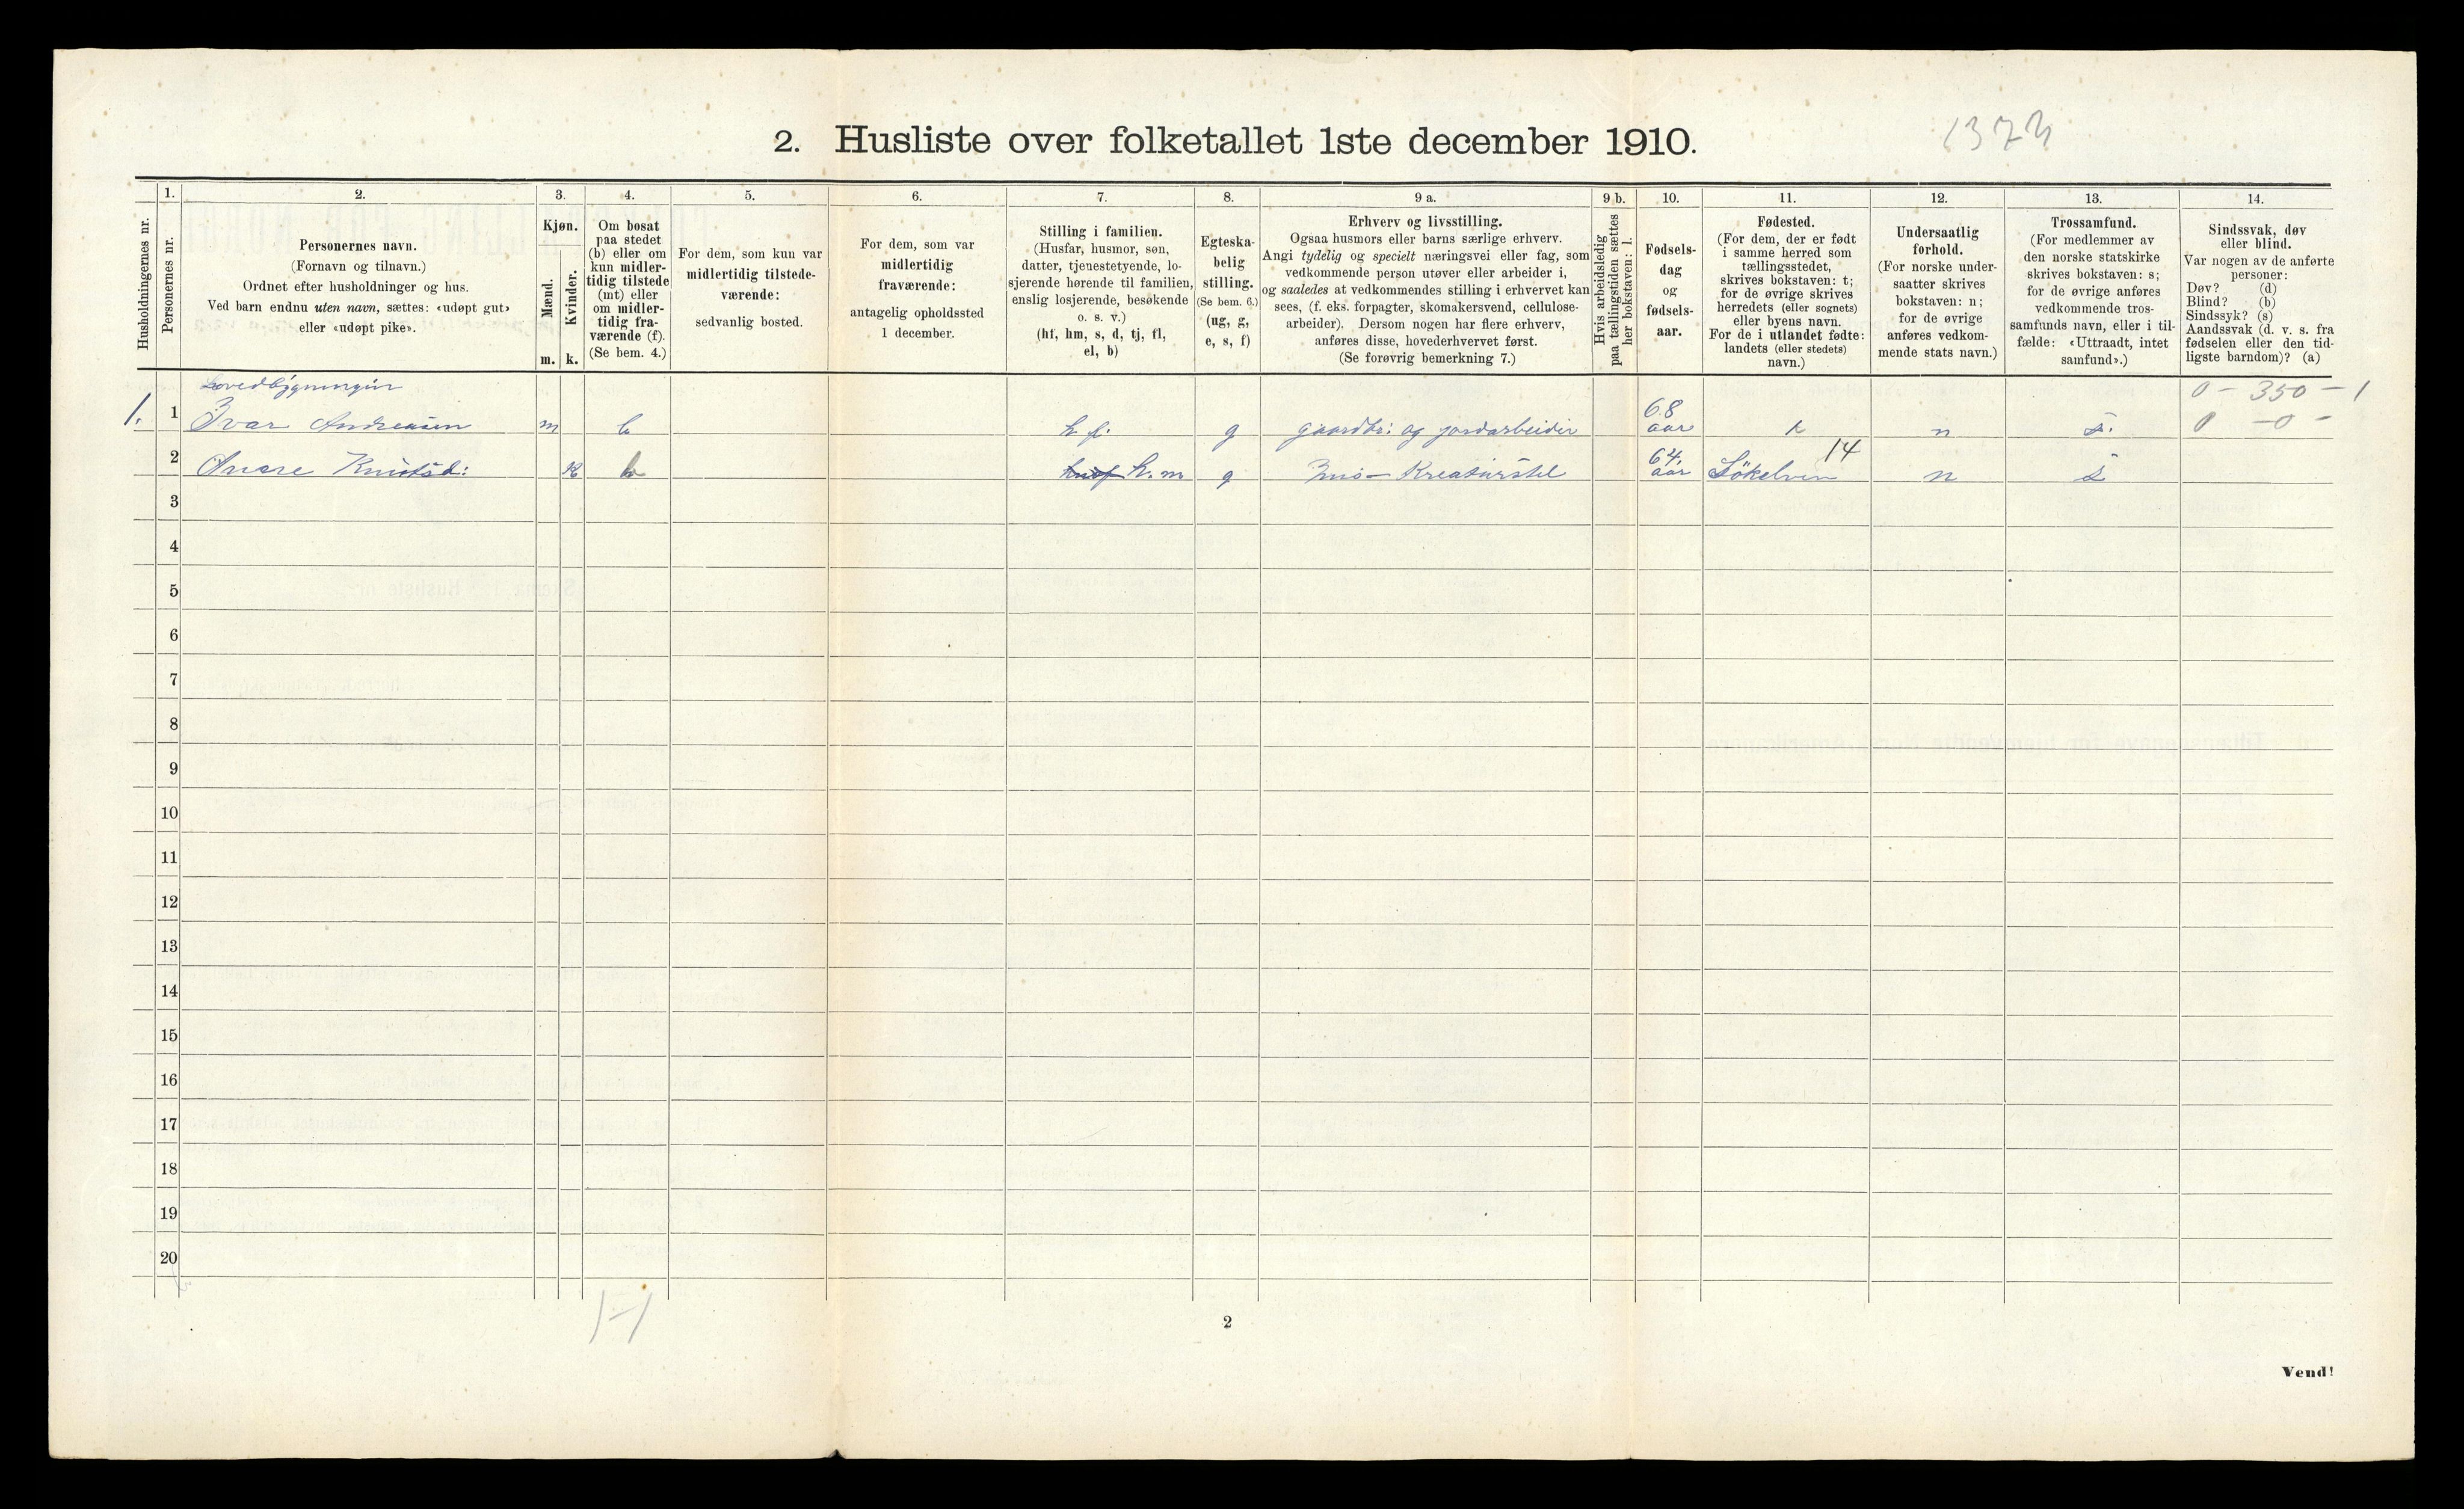 2. Husliste over folketallet 1ste december 1910.
1373
Husholdningernes nr.
1.
Personernes nr.
2.
Personernes navn.
(Fornavn og tilnavn.)
Ordnet efter husholdninger og hus.
Ved barn endnu uten navn, sættes: «udøpt gut»
eller «udøpt pike».
3.
Kjøn.
Mænd.
Kvinder.
m. k.
4.
Om bosat
paa stedet
(b) eller om
kun midler-
tidig tilstede
(mt) eller
om midler-
tidig fra-
værende (f).
(Se bem. 4.)
5.
For dem, som kun var
midlertidig tilstede-
værende:
sedvanlig bosted.
6.
For dem, som var
midlertidig
fraværende:
antagelig opholdssted
1 december.
7.
Stilling i familien.
(Husfar, husmor, søn,
datter, tjenestetyende, lo-
sjerende hørende til familien,
enslig losjerende, besøkende
o. s. v.)
(hf, hm, s, d, tj, fl,
el, b)
8.
Egteska-
belig
stilling.
(Se bem. 6.)
(ug, g,
e, s, f)
9 a.
Erhverv og livsstilling.
Ogsaa husmors eller barns særlige erhverv.
Angi tydelig og specielt næringsvei eller fag, som
vedkommende person utøver eller arbeider i,
og saaledes at vedkommendes stilling i erhvervet kan
sees, (f. eks. forpagter, skomakersvend, cellulose-
arbeider). Dersom nogen har flere erhverv,
anføres disse, hovederhvervet først.
(Se forøvrig bemerkning 7.)
9 b.
Hvis arbeidsledig
paa tællingstiden sættes
her bokstaven: l.
10.
Fødsels-
dag
og
fødsels-
aar.
11.
Fødested.
(For dem, der er født
i samme herred som
tællingsstedet,
skrives bokstaven: t;
for de øvrige skrives
herredets (eller sognets)
eller byens navn.
For de i utlandet fødte:
landets (eller stedets)
navn.)
12.
Undersaatlig
forhold.
(For norske under-
saatter skrives
bokstaven: n;
for de øvrige
anføres vedkom-
mende stats navn.)
13.
Trossamfund.
(For medlemmer av
den norske statskirke
skrives bokstaven: s;
for de øvrige anføres
vedkommende tros-
samfunds navn, eller i til-
fælde: «Uttraadt, intet
samfund».)
14.
Sindssvak, døv
eller blind.
Var nogen av de anførte
personer:
Døv? (d)
Blind? (b)
Sindssyk? (s)
Aandssvak (d. v. s. fra
fødselen eller den tid-
ligste barndom)? (a)
0 - 350 - 1
1. 1 Ivar Andreasen m b h f. g gaardbr: og jordarbeider 68 aar n s. 0 - 0 -
2 Knutsd: k b h. m g Kreaturstel 64. aar 14 n s
3
4
5
6
7
8
9
10
11
12
13
14
15
16
17
18
19
20
1-1
2
Vend!